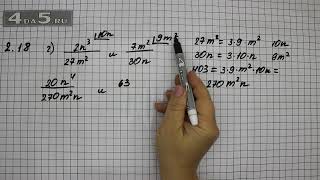 4da5.ru
2.18 г) 2n³/27m² |10n и 7m²/30n |9m²
27m² = 3·9·m² 10n
30n = 3·10·n 9m²
403 = 3·9·m²·10n =
270m²n
20n⁴/270m²n и 63